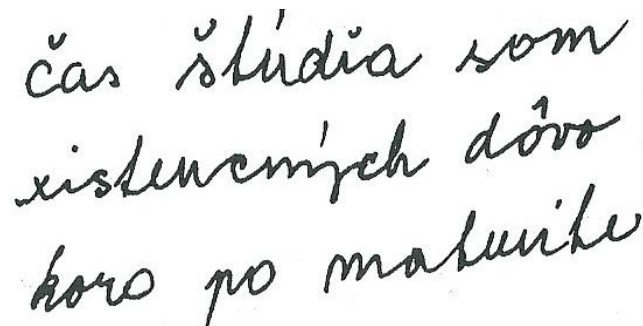 čas štúdia som
xistencných dôvo
koro po maturite